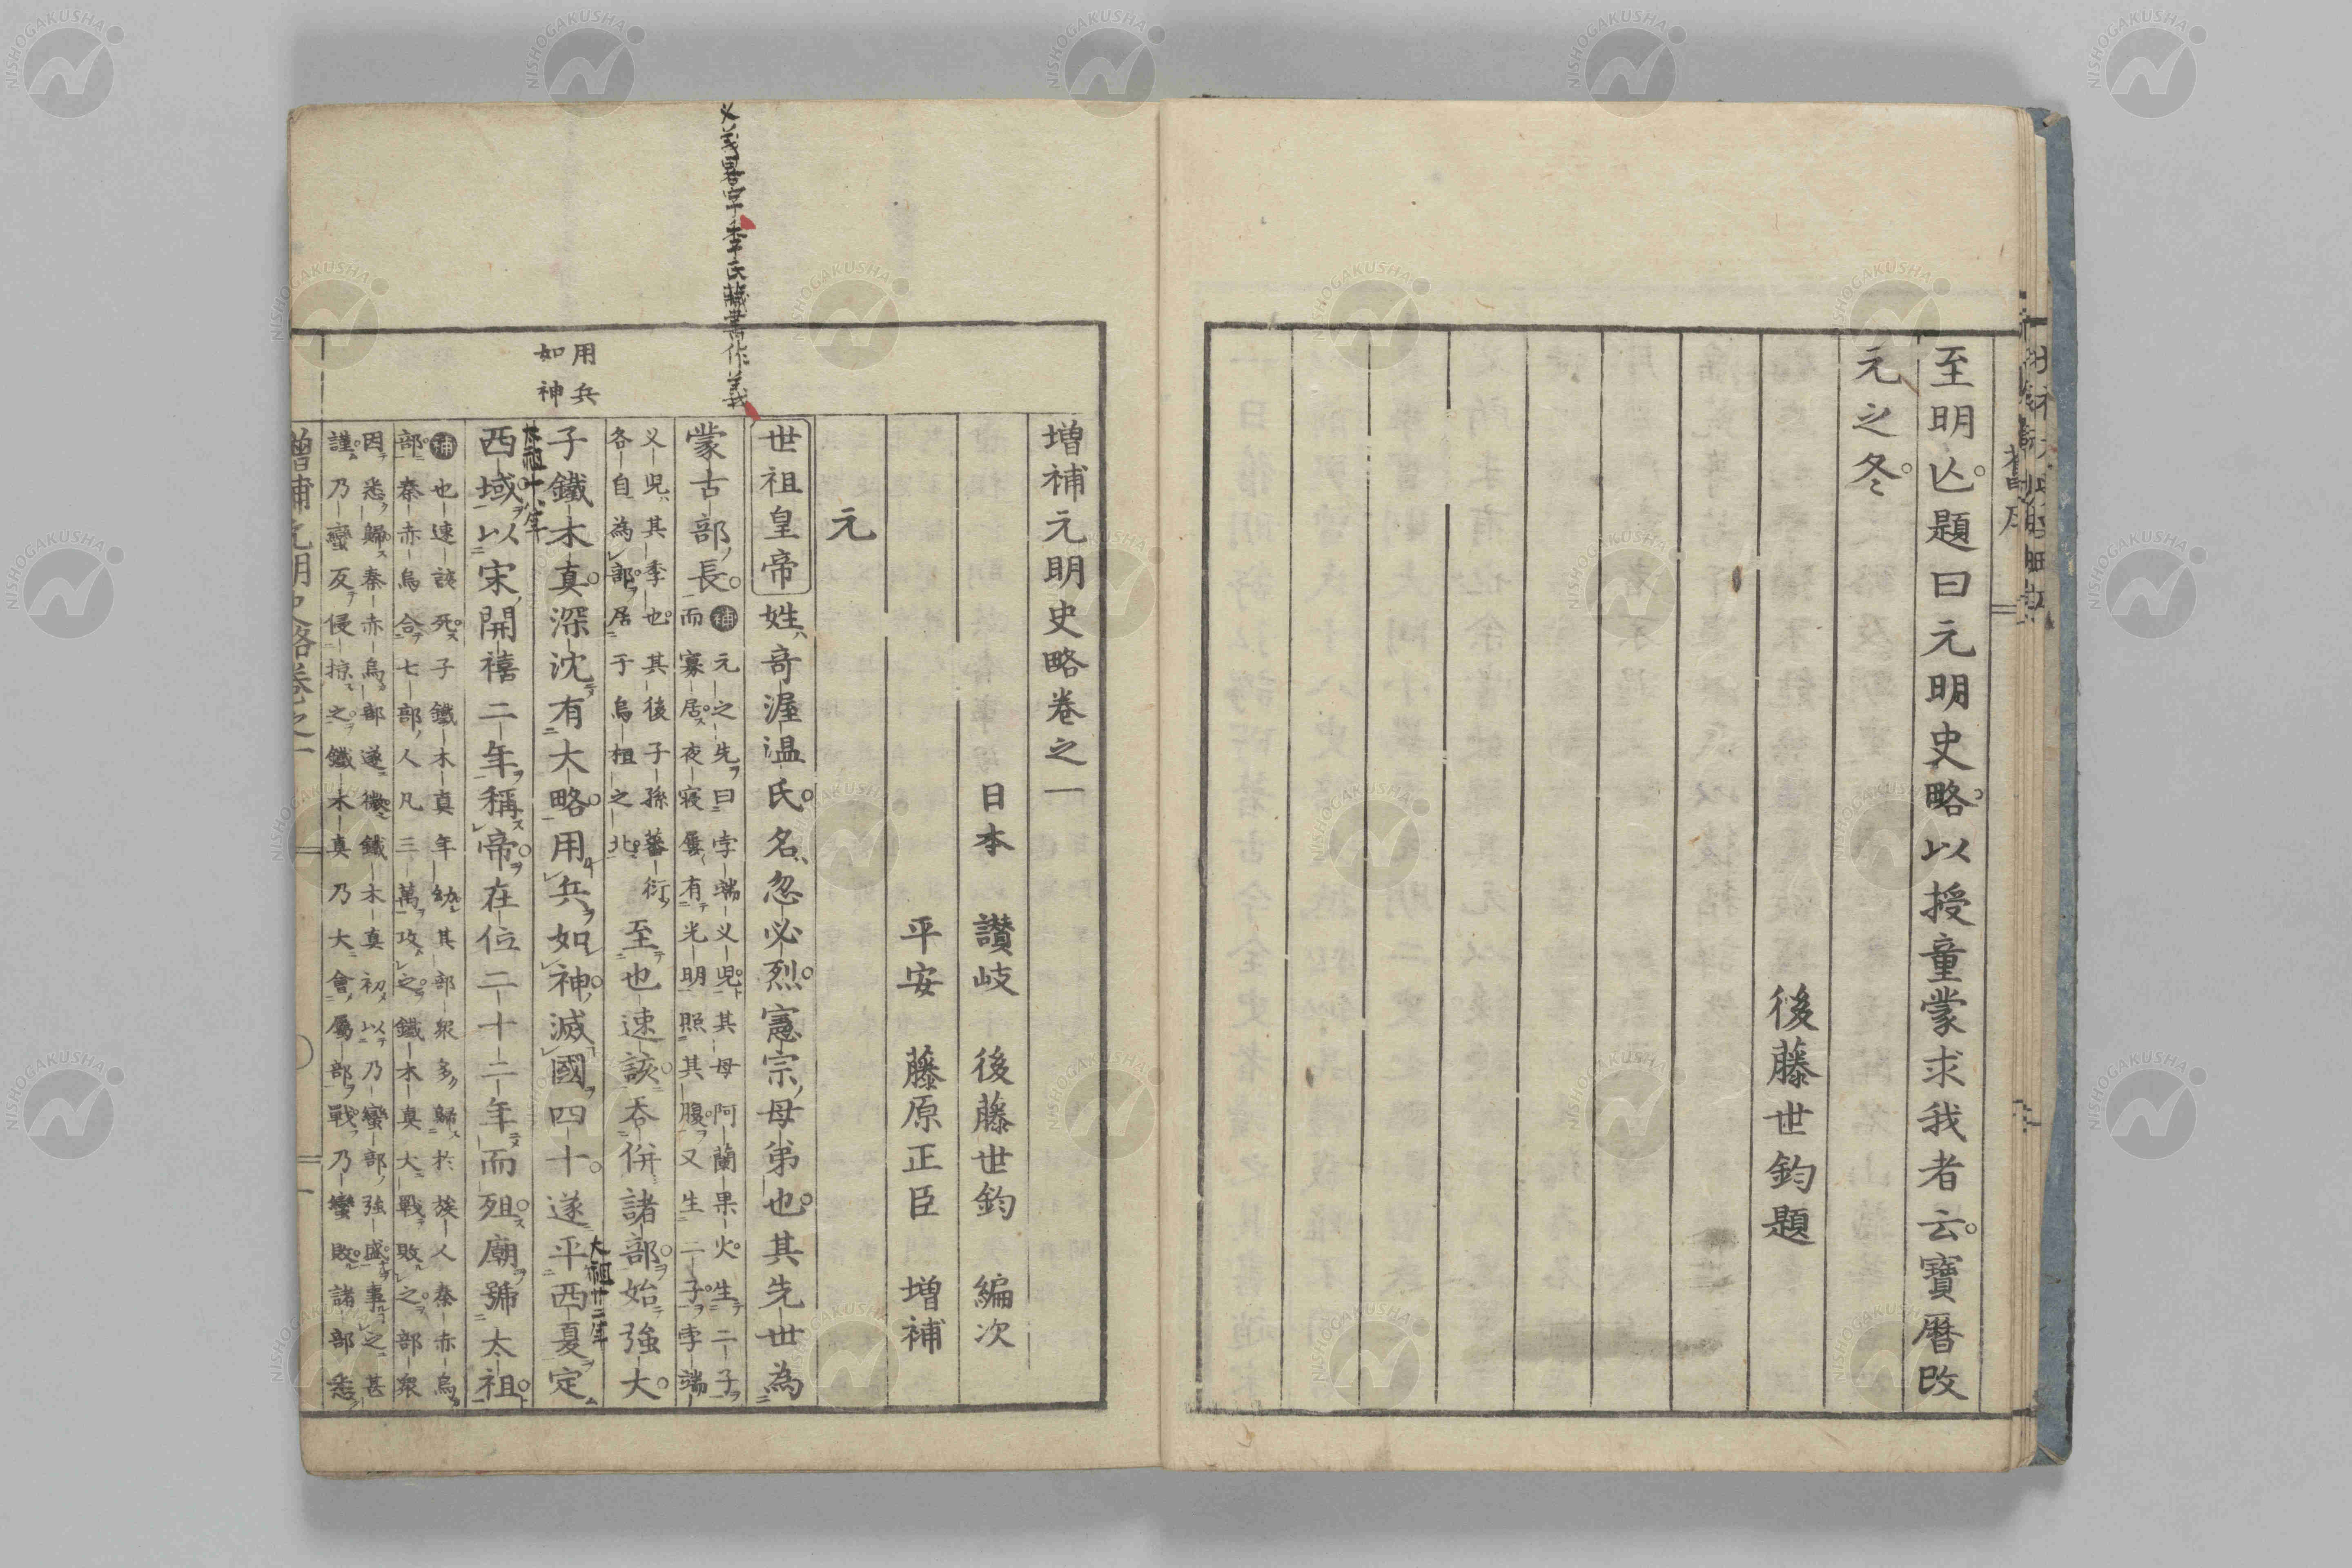 舊序
至明亾題曰元明史略以授童蒙求我者云寶曆改
元之冬
後藤世鈞題
增補元明史略卷之一
日本 讃岐 後藤世鈞 編次
平安 藤原正臣 增補
元
世祖皇帝姓奇渥温氏名忽必烈憲宗母弟也其先世為
蒙古部長補元之先曰孛端义兒其母阿蘭果火生二子
而寡居夜寢屢有光明照其腹又生二子孛端
义兒其季也其後子孫蕃衍
各自為部居于烏桓之北至也速該吞併諸部始強大
子鐵木真深沈有大略用兵如神滅國四十遂平西夏定
西域以宋開禧二年稱帝在位二十二年而殂廟號太祖
補也速該死子鐵木真年幼其部眾多歸於族人泰赤烏
部泰赤烏合七部人凡三萬攻之鐵木真大戰敗之部眾
因悉歸泰赤烏部遂微鐵木真初以乃蠻部強盛事之甚
謹乃蠻反侵掠之鐵木真乃大會屬部戰乃蠻敗諸部悉
用兵
如神
义義畧字李氏藏書作義
太祖廿二年
太祖十八年
增補元明史略卷之一
一
NISHOGAKUSHA